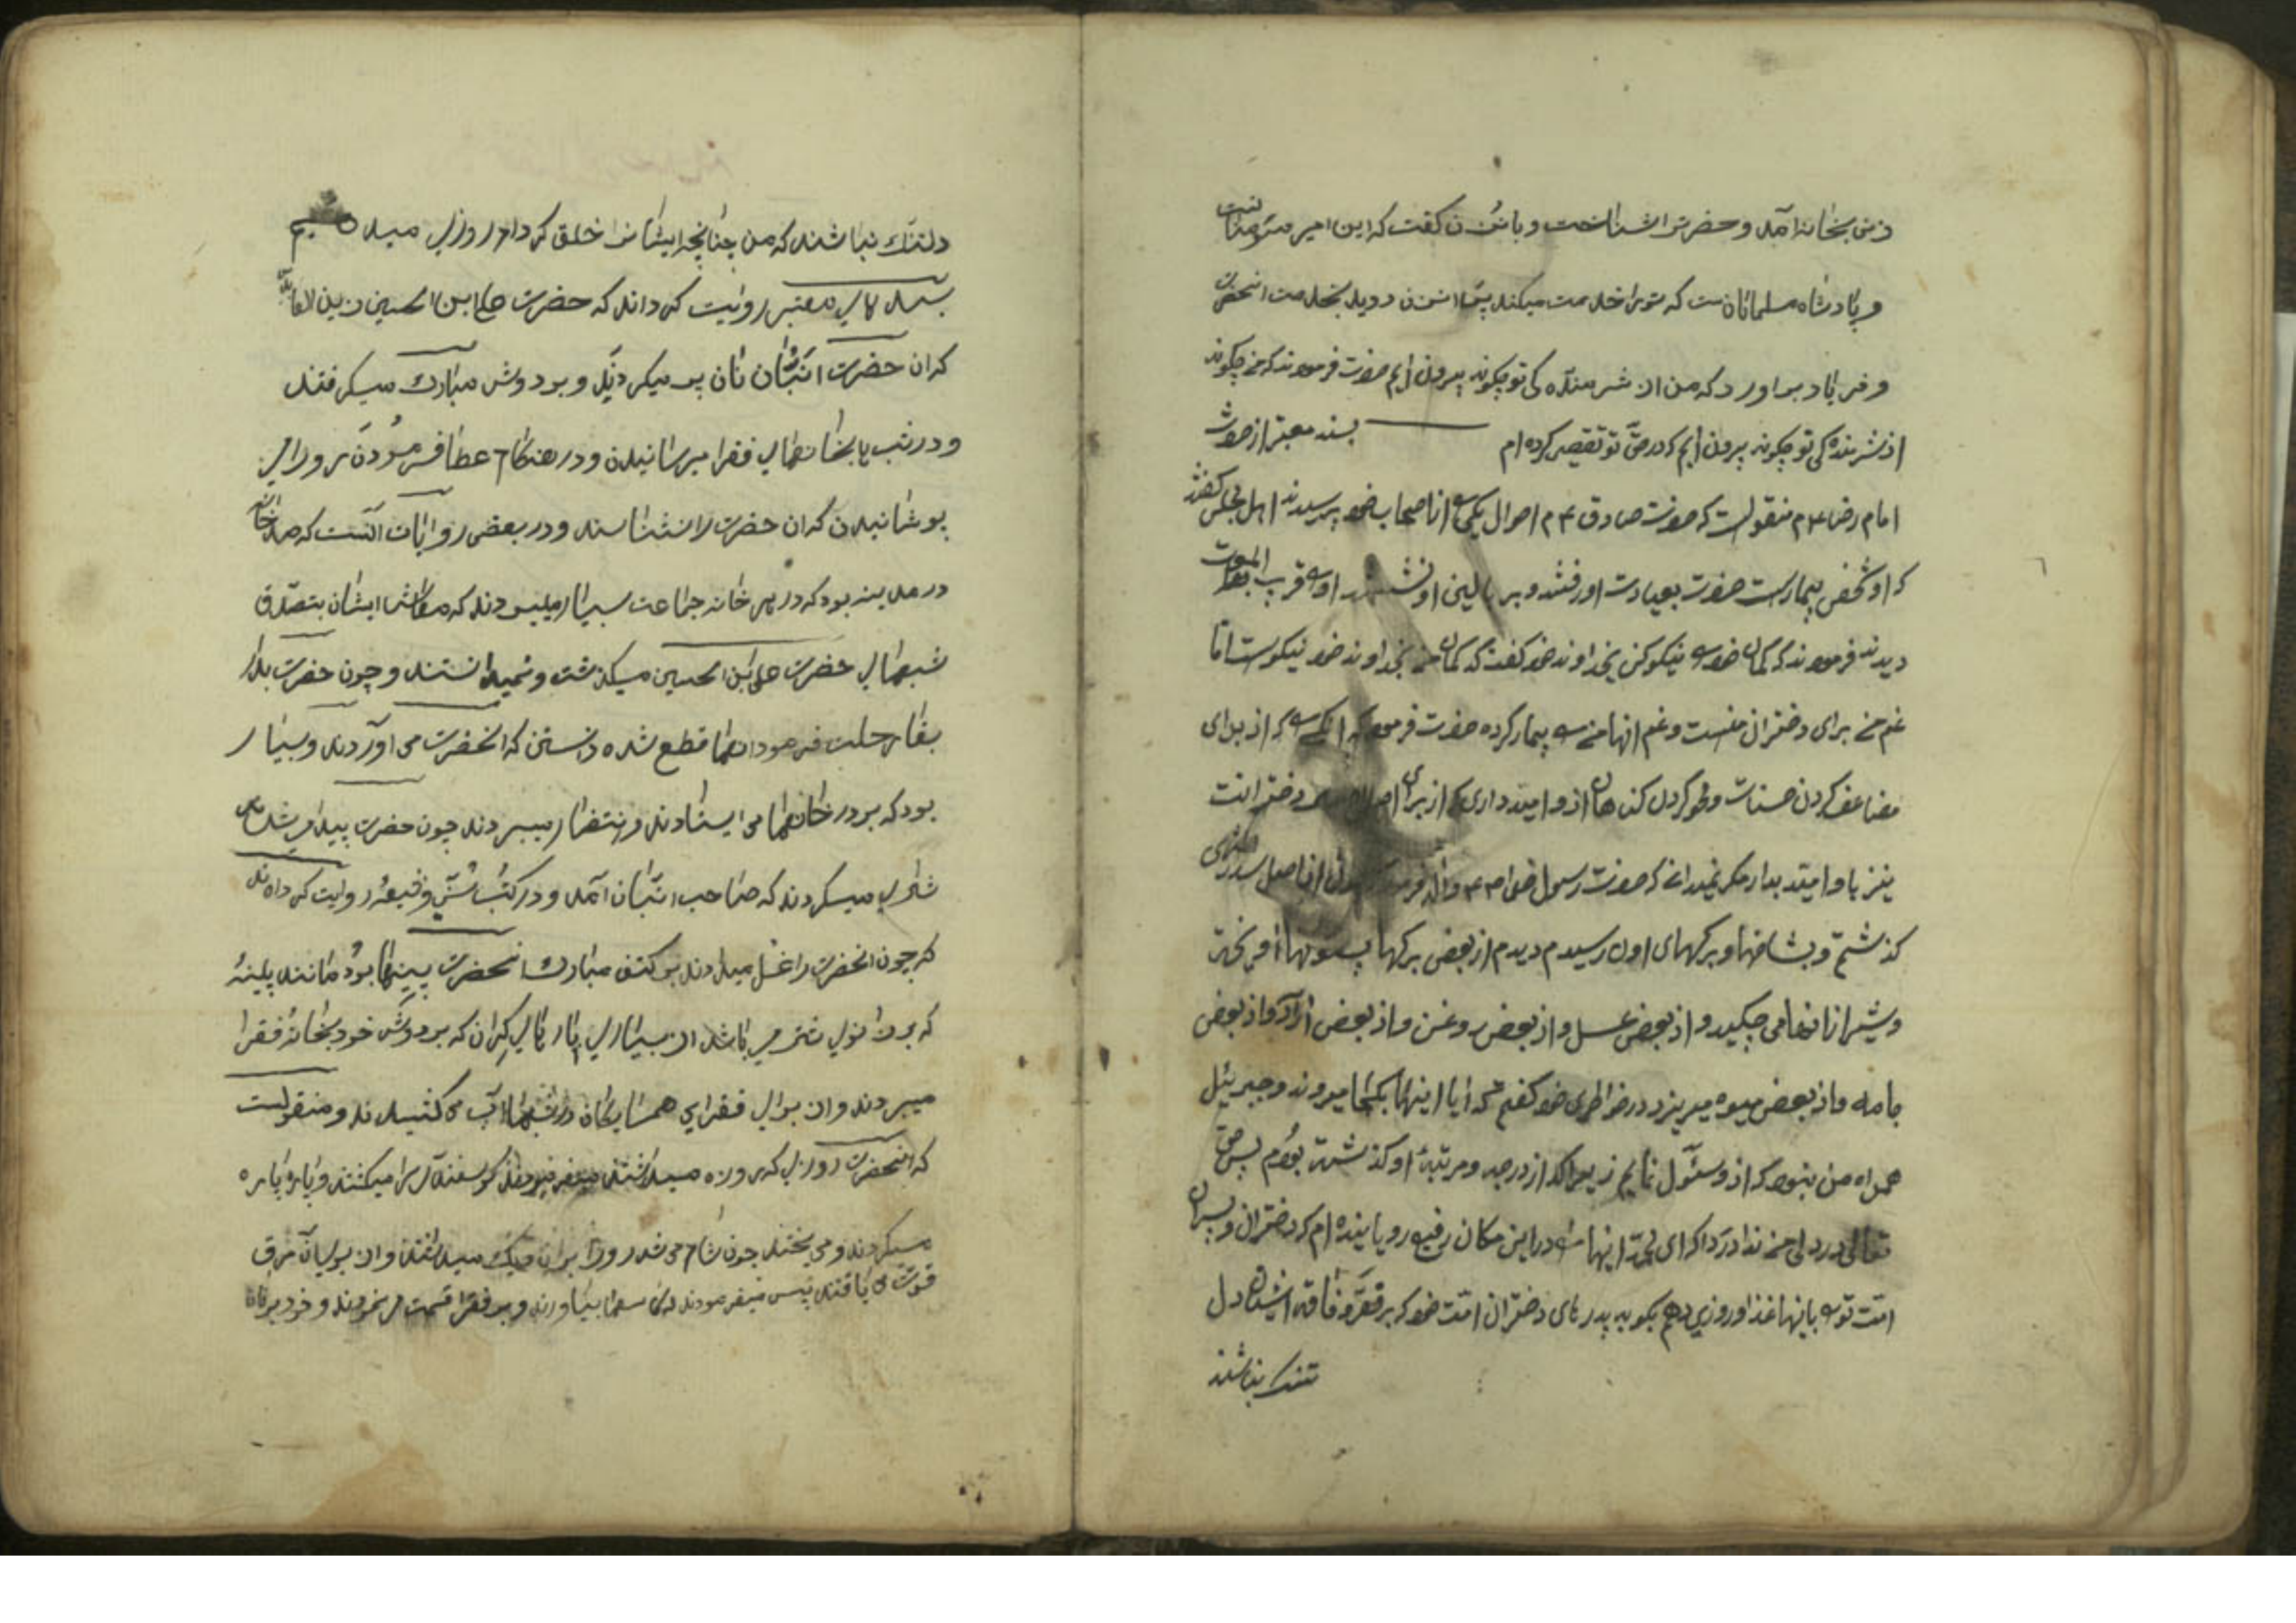 زنی بخانه آمد و حضرترا شناخت و باشن زن گفت که این امیر مؤمنانست
و پادشاه مسلمانانست که ترا خدمت میکند پس ان زن دوید بخدمت انحضرت
و فریاد براورد که من از شرمنده کی تو چکونه بیرون ایم حضرت فرمودند که من چکونه
از شرمنده کی تو چکونه بیرون ایم که در حق تو تقصیر کرده ام بسند معتبر از حضرت
امام رضا ۴م منقولست که حضرت صادق ۴م احوال یکی از اصحاب خود پرسیدند اهل مجلس گفتند
که او شخص بیمارست حضرت بعیادت او رفتند و بر بالین او نشستند او قریب الموت
دیدند فرمودند که گمان خود نیکو کن بخداوند خود گفت که گمان من بخداوند خود نیکوست اما
غم من برای دختران منست و غم انها من بیمار کرده حضرت فرمود که انکسی که از برای
مضاعف کردن حسنات و محو کردن کناهان ازو امید داری از برای دخترانت
نیز باو امید بدار مکر نمیدانی که حضرت رسول خدا از اصل سدره
کذشتم و بشاخها و برکهای اول رسیدم دیدم از بعض برکها پستونها آویخته
و شیر از انها می چکید و از بعض عسل و از بعض روغن و از بعض آرد و از بعض
جامه و از بعض میوه میریزد در خواطر خود کفتم که ایا اینها بکجا میروند و جبرئیل
همراه من نبود که ازو سئول نمایم زیرا که از درجه و مرتبهٔ او کذشته بودم پس حق
تعالی در دل من ندا در داد که ای محمد اینها در این مکان رفیع رویاینده ام که دختران و پسران
امت تو باینها غذا و روزی دهم بکو به پدرهای دختران امت خود که بر فقر و فاقه ایشان دل
تنک نباشند
دلتنک نباشند که من چنانچه ایشانرا خلق کرده ام روزی میدهم
بسندهای معتبر روایت کرده اند که حضرت علی ابن الحسین زین العابدین
که ان حضرت انبان نان پر میکردند و بردوش مبارک میکرفتند
و در شب بخانهای فقرا میرسانیدن و در هنکام عطا فرمودن روی
پوشانیدن که ان حضرت را نشناسند و در بعضی روایات آنست که صد خانه
در مدینه بود که در هر خانه جماعت بسیار میبودند که معاش ایشان بتصدق
شبهای حضرت علی ابن الحسین میکذشت و نمیدانستند و چون حضرت بدار
بقا رحلت فرمود انها قطع شده دانستن که انحضرت می آوردند و بسیار
بود که بر در خانها می ایستادند و انتظار میبردند چون حضرت پیدا میشد
شادی میکردند که صاحب انبان آمد و در کتب سنی و شیعه روایت کرده اند
که چون انحضرت را غسل میدادند بر کتف مبارک انحضرت پینها بود مانند پینهٔ
که بر زانوی شتر می باشد از بسیاری بارهای کران که بردوش خود بخانهٔ فقرا
میبردند و از برای فقرای همسایکان در شبها آب می کشیدند و منقولست
که انحضرت روزی که روزه میداشتند میفرمودند کوسفند را میکشتند و پاره پاره
میکردند و می پختند چون شام می شد و از بوی آن مرق
قوت می یافتند پس میفرمودند که بیاورند و بر فقرا قسمت می نمودند و خود بر نان